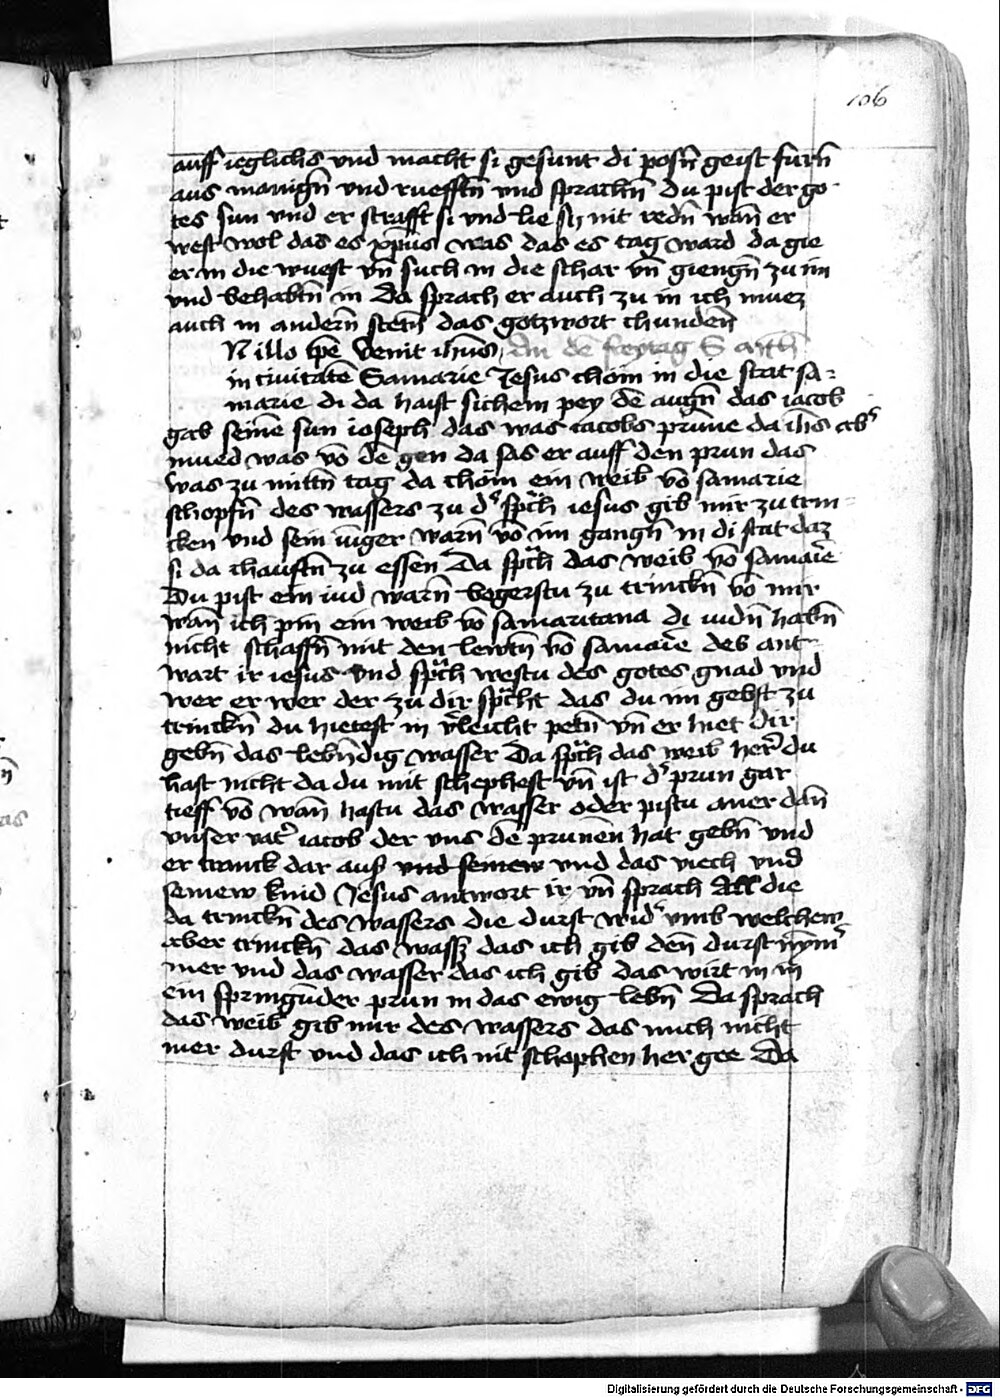 106
auff ieglichs vnd macht si gesunt di posn̄ geist furn̄
aus manign̄ vnd ruefftn̄ vnd sprachn̄ Du pist der go-
tes sun vnd er strafft si vnd lie sy nit redn̄ wan̄ er
west wol das es xp̄us was das es tag ward da gie
er in die wuest vn̄ such in die schar vn̄ giengn̄ zu im
vnd behabtn̄ in Da sprach er auch zu in ich muez
auch in andern̄ stetn̄ das gotzwort chunden̄
N illo tp̄e venit ih̄us an dē freytag S
in ciuitatē Samarie Jesus chom in die stat sa-
marie di da haist sichem pey dē augn̄ das iacob
gab seinē sun ioseph das was iacobs prūne da ih̄s
mued was vō dē gen da sas er auff den prun das
was zu mittn̄ tag da chom ein weib vō samarie
schopfn̄ des wassers zu dʾ sprͣch iesus gib mir zu trin-
cken vnd sein iūger warn̄ vō im gangn̄ in di stat daz
si da chauftn̄ zu essen Da sprͣch das weib vō samaīe
Du pist ein iud warn̄ begerstu zu trinckn̄ vō mir
wan̄ ich pin ein weib vō samaritana di iudn̄ habn̄
nicht schaffn̄ mit den lewtn̄ vō samaīe des ant-
wart ir iesus vnd sprͣch westu des gotes gnad vnd
wer er wer der zu dir sprͥcht das du im gebst zu
trinckn̄ du hietest in vʾleicht petn̄ vn̄ er hiet dir
gebn̄ das lebn̄dig wasser Da sprͣch das weib her̄ du
hast nicht da du mit schephest vn̄ ist dʾ prun gar
tieff vō wan̄ hastu das wasser oder pistu mer dan̄
vnser vatʾ iacob der vns dē prunen̄ hat gebn̄ vnd
er tranck dar aus vnd seinew vnd das viech vnd
seinew kind Jesus antwort ir vn̄ sprach All die
da trinckn̄ des wassers die durst widʾ vmb welchew
aber trinckn̄ das wassʾ das ich gib den̄ durst nym̄
mer vnd das wasser das ich gib das wirt in in
ein springūder prun in das ewig lebn̄ Da sprach
das weib gib mir des wassers das mich nicht
mer durst vnd das ich nit schophen her gee Da
Digitalisierung gefördert durch die Deutsche Forschungsgemeinschaft - DFG